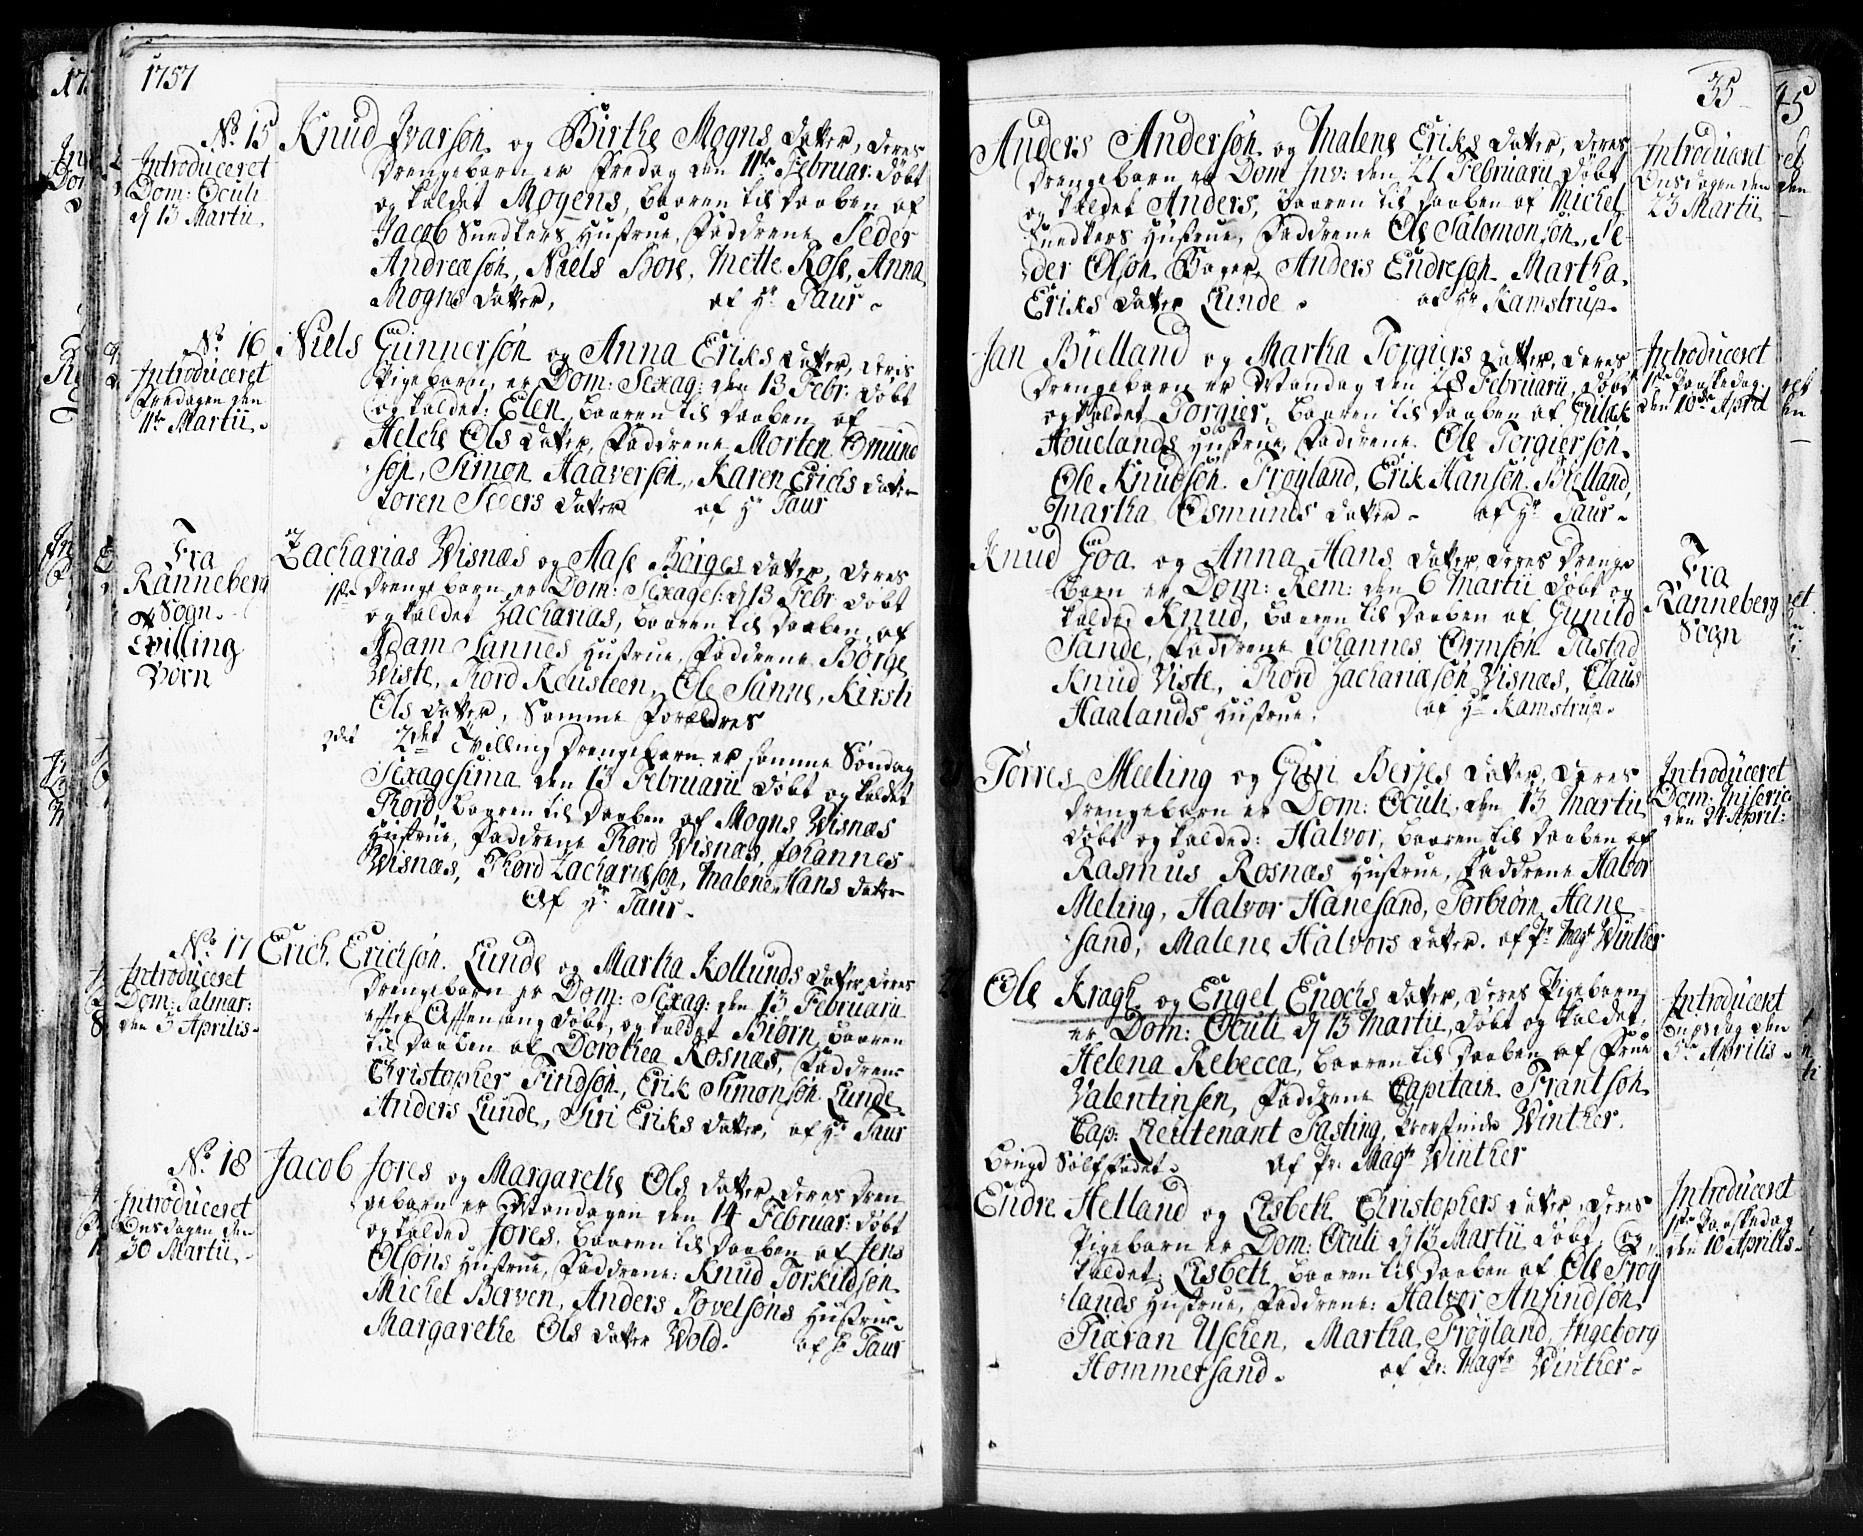 1757
No 15
Introduceret
Dom: Oculi
d 13 Martii
Knud Ivarsøn og Birthe Mogns dater, deres
Drengebarn er Fredag den 11te Februar: døbt
og kaldet Mogens, baaren til Daaben af
Jacob Snedkers Hustrue, Faddrene Peder
Andreæsøn, Niels Bore, Mette Rose, Anna
Mogns dater, af Hr Taur
No 16
Introduceret
Fredagen den
11te Martii
Niels Gunnersøn og Anna Eriks dater, deris
Pigebarn, er Dom: Sexag: den 13 Febr: døbt
og kaldet: Elen, baaren til Daaben af
Helche Ols dater, Faddrene Morten Omund
søn, Simon Haaversøn, Karen Erichs dater
Loren Peders dater af Hr Taur
Fra
Ranneberg
Sogn
Tvilling
Børn
Zacharias Wisnæs og Aase Børges dater, deres
1ste Drengebarn er Dom: Sexages: d 13 Febr: døbt
og kaldet Zacharias, baaren til Daaben af
Adam Sannes Hustrue, Faddrene Børge
Wiste, Thord Reusteen, Ole Sanne, Kirsti
Ols dater, Samme Forældres
2det 2det Tvilling Drengebarn er samme Søndag
Sexagesima den 13 Februarii døbt og kaldet
Thord, baaren til Daaben af Mogns Wisnæs
Hustrue, Faddrene Thord Wisnæs, Johannes
Wisnæs, Thord Zachariæsøn, Malene Hans dater
Af Hr Taur
No 17
Introduceret
Dom: Palmar:
den 3 Aprilis
Erich Erichsøn Lunde og Martha Kollunds dater, deres
Drengebarn er Dom: Sexag: den 13 Februarii
efter Aftensang døbt, og kaldet Biørn, baaren
til Daaben af Dorothea Rosnæs, Faddrene
Christopher Findsøn, Erik Simonsøn Lunde
Anders Lunde, Siri Eriks dater, af Hr Taur
No 18
Introduceret
Onsdagen den
30 Martii
Jacob Jores og Margarethe Ols dater deres Dren
gebarn er Mandagen den 14 Februar: døbt
og kalded Jores, baaren til Daaben af Jens
Olsøns Hustrue, Faddrene: Knud Torkildsøn
Michel Berven, Anders Povelsøns Hustrue
Margarethe Ols dater Wold. af Hr Taur
35
Anders Andersøn og Malene Eriks dater, deres
Drengebarn er Dom Inv: den 27 Februarii døbt
og kaldet Anders, baaren til Daaben af Michel
Snedkers Hustrue, Faddrene Ole Salomonsøn, Pe-
der Olsøn Bager, Anders Endresøn, Martha
Eriks dater Lunde. af Hr Ramstrup
Introduceret
Onsdagen den
23 Martii
Jan Bielland og Martha Torgiers dater, deres
Drengebarn er Mandag den 28 Februarii døbt
og kaldet Torgier, baaren til Daaben af Gulak
Houelands Hustrue, Faddrene Ole Torgiersøn
Ole Knudsøn Frøyland, Erik Hansøn Bielland,
Martha Osmunds dater af Hr Taur
Introduceret
1ste Paaskedag
den 10de April
Knud Goa og Anna Hans dater, deres Drenge
barn er Dom: Rem: den 6 Martii døbt og
kaldet Knud, baaren til Daaben af Gunild
Sande, Faddrene Johannes Ormsøn Tastad
Knud Viste, Thord Zachariæsøn Visnæs, Claus
Haalands Hustrue, af Hr Ramstrup
Fra
Ranneberg
Sogn
Torres Meeling og Guri Berjes dater, deres
Drengebarn er Dom: Oculi, den 13 Martii
døbt og kalded: Halvor, baaren til Daaben af
Rasmus Rosnæs Hustrue, Faddrene Halvor
Meling, Halvor Hanesand, Torbiørn Hane
sand, Malene Halvors dater. af Pr: Magr Winther
Introduceret
Dom: Miseric:
den 24 April:
Ole Kragh og Engel Enochs dater, deres Pigebarn
er Dom: Oculi d 13 Martii, døbt og kaldet,
Helena Rebecca, baaren til Daaben af Frue
Valentinsen, Faddrene Capitain Frantsøn
Cap: Leutenant Fasting, Provstinde Winther.
Af Pr: Magr Winther
Introduceret
Onsdag den
Aprilis
Endre Helland og Lisbeth Christophers dater, deres
Pigebarn er Dom: Oculi d 13 Martii døbt, og
kaldet: Lisbeth, baaren til Daaben af Ole Frøy
lands Hustrue, Faddrene: Halvor Ansindsøn
Tiæran Uschen, Martha Frøyland, Ingeborg
Hommersand. af Pr: Magr Winther
Introduceret
1ste Paaskedag
den 10 Aprilis